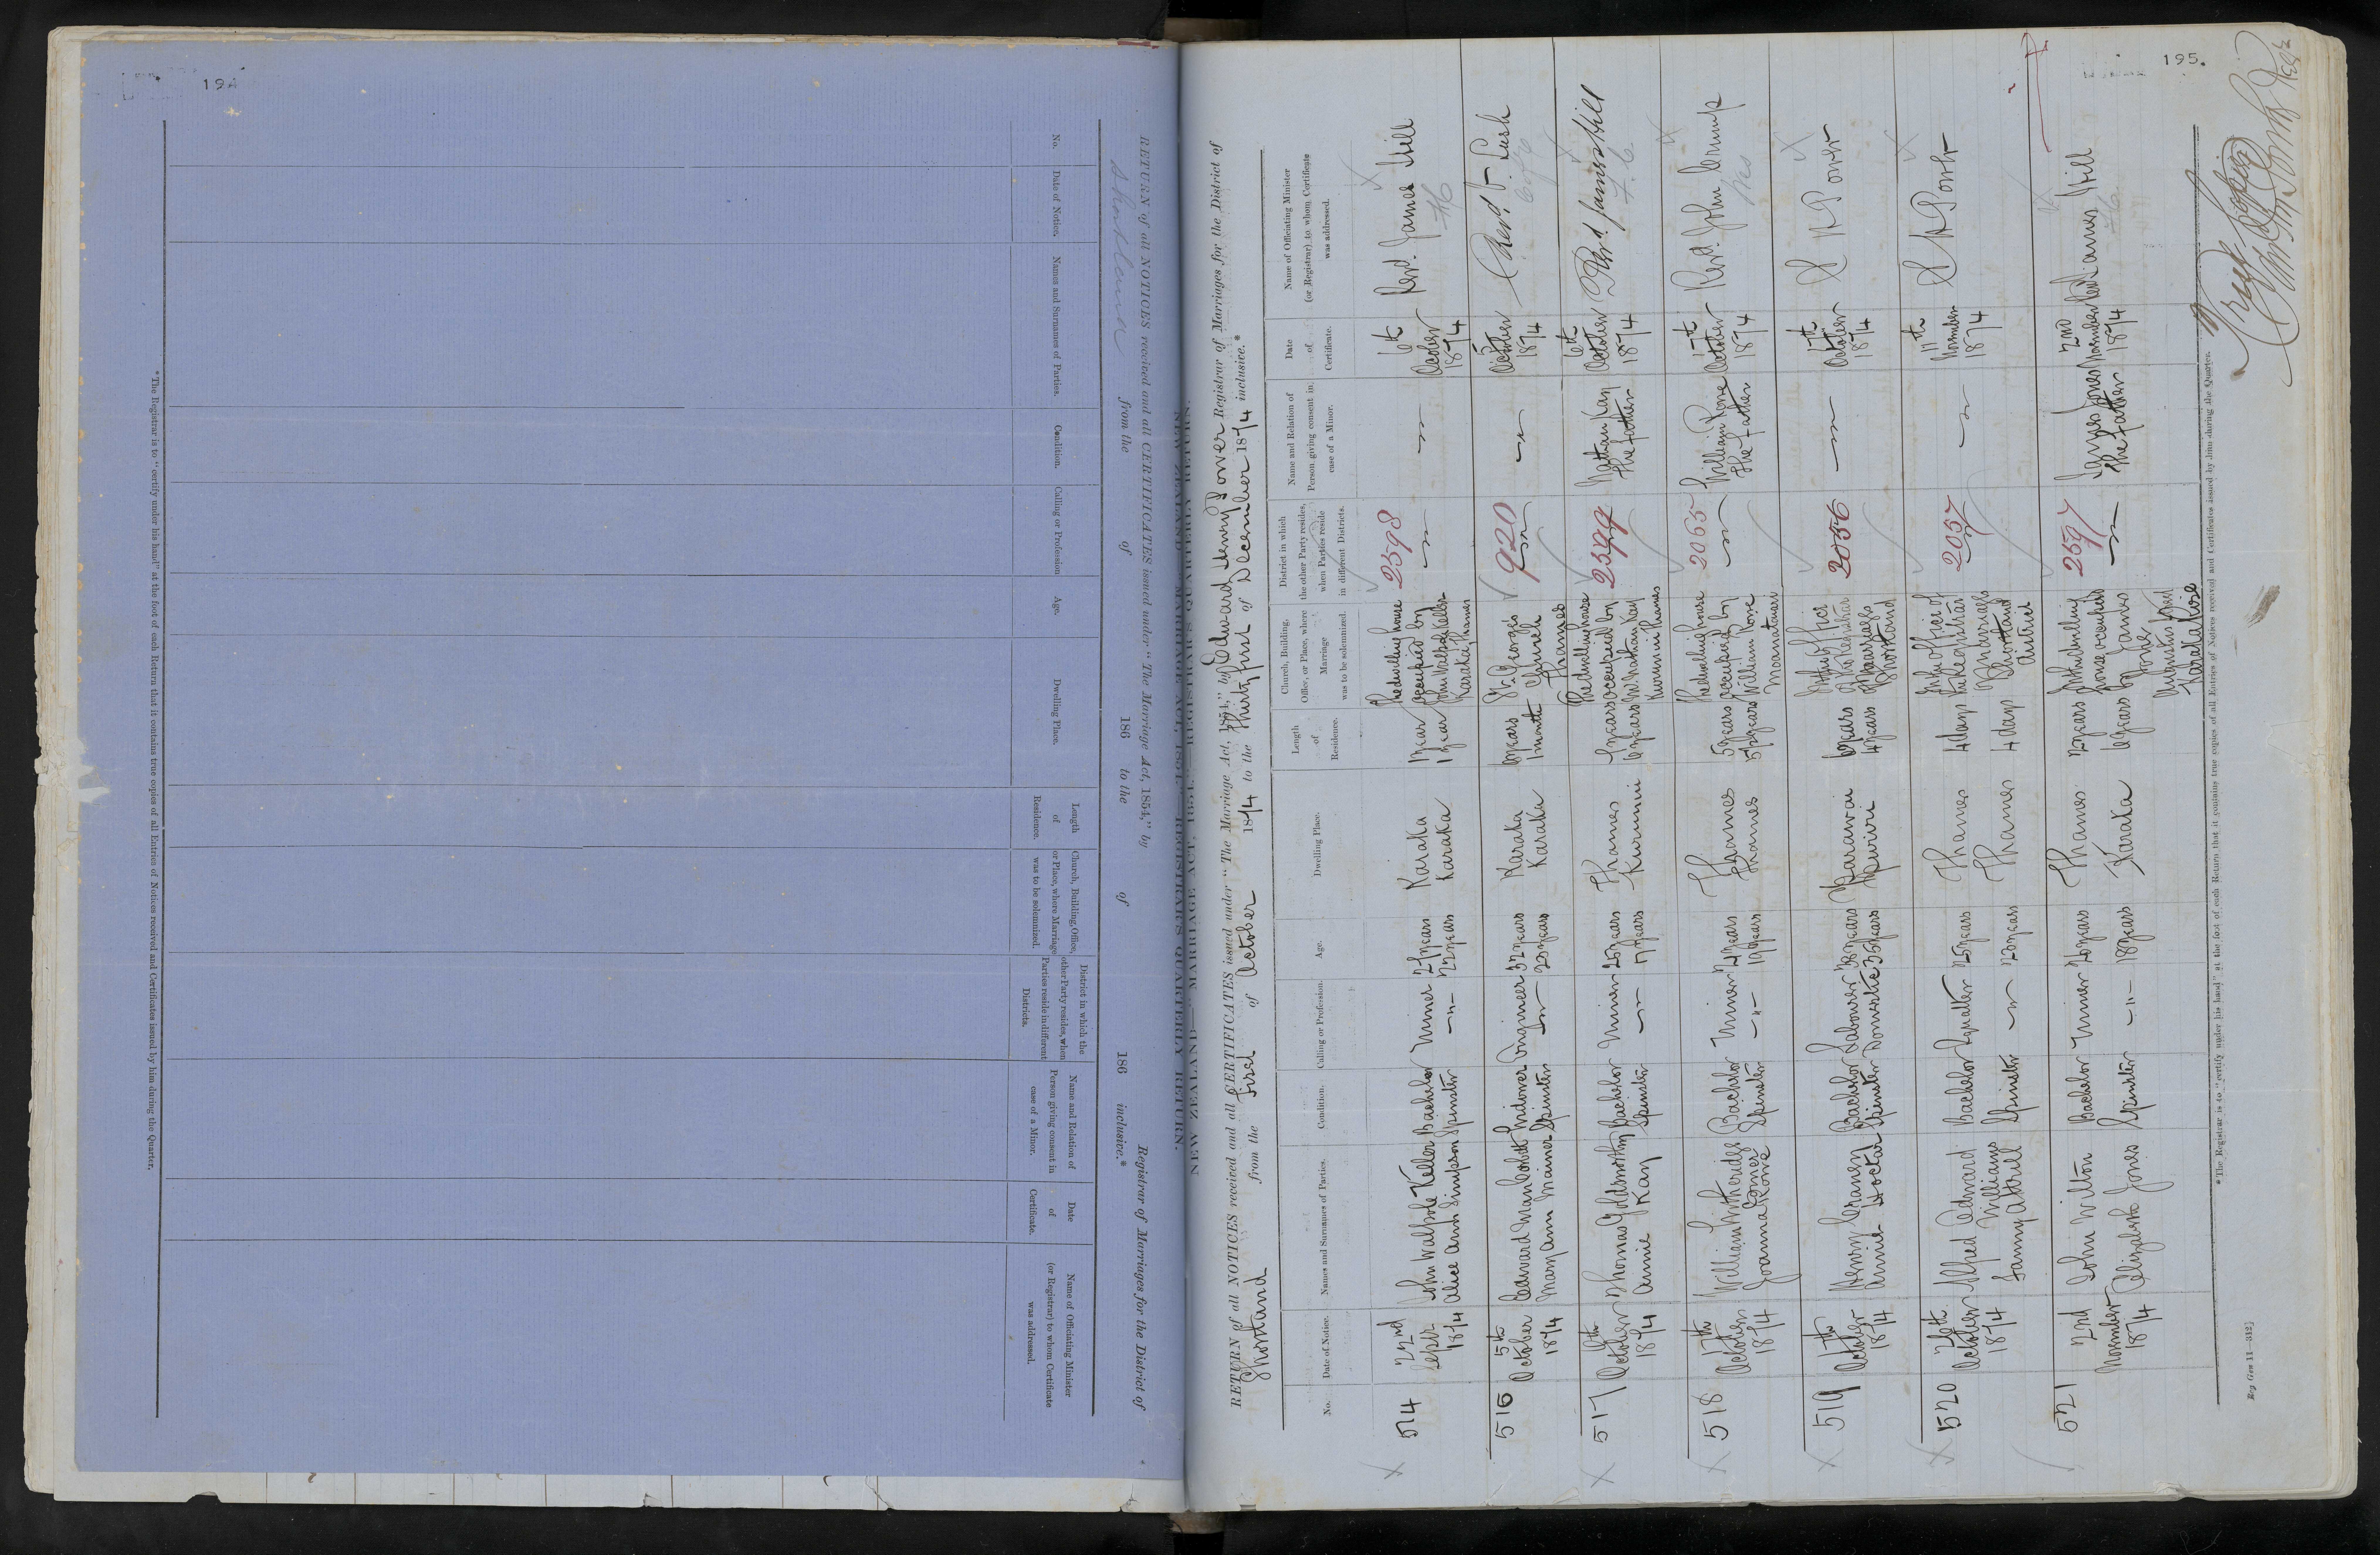 194
No.
Date of Notice.
Names and Surnames of Parties.
Condition.
Calling or Profession
Age.
Dwelling Place.
Length
of
Residence.
Church, Building, Office,
or Place, where Marriage
was to be solemnized.
District in which the
other Party resides, when
Parties reside in different
Districts.
Name and Relation of
Person giving consent in
case of a Minor.
Date
of
Certificate.
Name of Officiating Minister
(or Registrar) to whom Certificate
was addressed.
NEW ZEALAND.—"MARRIAGE ACT, 1854."—REGISTRAR'S QUARTERLY RETURN.
RETURN of all NOTICES received and all CERTIFICATES issued under "The Marriage Act, 1854," by Registrar of Marriages for the District of
Shortland from the of 186 to the of 186 inclusive.*
* The Registrar is to "certify under his hand" at the foot of each Return that it contains true copies of all Entries of Notices received and Certificates issued by him during the Quarter.
195.
RETURN of all NOTICES received and all CERTIFICATES issued under "The Marriage Act, 1854," by Edward Henry Power Registrar of Marriages for the District of
Shortland from the first of October 1874 to the thirty first of December 1874 inclusive.*
No.
Date of Notice.
Names and Surnames of Parties.
Condition.
Calling or Profession.
Age.
Dwelling Place.
Length
of
Residence.
Church, Building,
Office, or Place, where
Marriage
was to be solemnized.
District in which
the other Party resides,
when Parties reside
in different Districts.
Name and Relation of
Person giving consent in
case of a Minor.
Date
of
Certificate.
Name of Officiating Minister
(or Registrar) to whom Certificate
was addressed.
514
22nd
Septr
1874
John Walpole Keller
Alice Ann Simpson
Bachelor
Spinster
Miner
27 years
22 years
Karaka
Karaka
1 year
1 year
The dwelling house
occupied by
John Walpole Keller
Karaka, Thames
2598
6th
October
1874
Revd. James Hill
516
5th
October
1874
Edward
Mary Ann Mainer
Widower
Spinster
Engineer
32 years
20 years
Karaka
Karaka
6 years
1 month
St. George's
Church
Thames
920
5
October
1874
Revd. V. Lush
517
6th
October
1874
Thomas Goldsworthy
Annie Kay
Bachelor
Spinster
Miner
25 years
17 years
Thames
Kurunui
5 years
6 years
The dwelling house
occupied by
Mr Nathan Kay
Kurunui Thames
2599
Nathan Kay
the father
6th
October
1874
Revd. James Hill
518
7th
October
1874
William Witherides
Jones
Joanna Rowe
Bachelor
Spinster
Miner
24 years
19 years
Thames
Thames
5 years
5½ years
The dwelling house
occupied by
William Rowe
Moanataiari
2055
William Rowe
the father
7th
October
1874
Revd. John Crump
519
7th
October
1874
Henry Craven
Annie Hoctar
Bachelor
Spinster
Labourer
Domestic
38 years
35 years
Parawai
6 years
4 years
In the office
of the Registrar
of Marriages
Shortland
2056
7th
October
1874
E H Power
520
26th.
October
1874
Alfred Edward
Williams
Fanny Attrill
Bachelor
Spinster
Squatter
25 years
20 years
Thames
Thames
4 days
4 days
In the office of
the Registrar
of Marriages
Shortland
district
2057
11th
November
1874
E H Power
521
2nd
November
1874
John Wilton
Elizabeth Jones
Bachelor
Spinster
Miner
20 years
18 years
Thames
Karaka
2 years
6 years
In the dwelling
house occupied
by James
Jones
2597
James Jones
the father
2nd
November
1874
Revd James Hill
True Copies
* The Registrar is to "certify under his hand" at the foot of each Return that it contains true copies of all Entries of Notices received and Certificates issued by him during the Quarter.
Reg Gen 11—342]